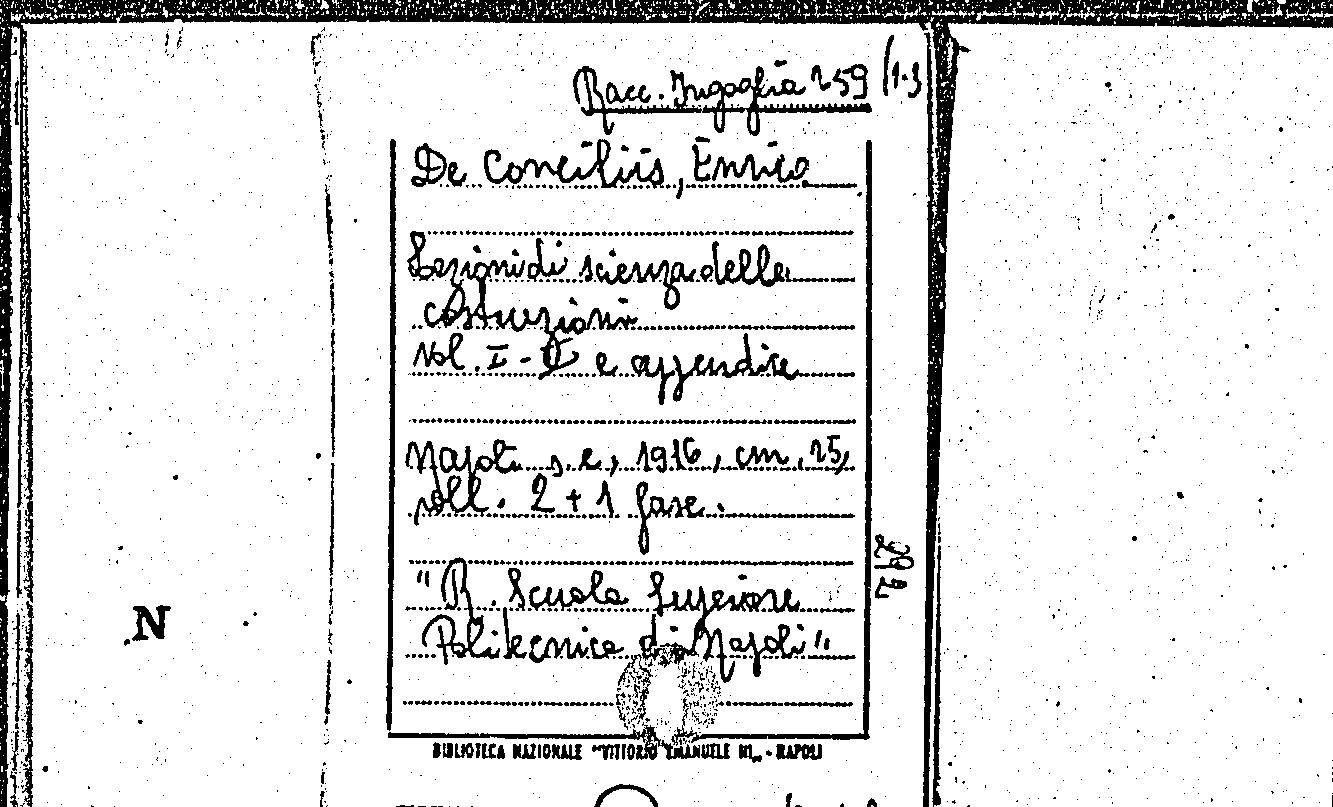 Racc. Ingoglia 259 (1-3
De Conciliis, Enrico
Lezioni di scienza delle
costruzioni
vol. I - II e appendice
Napoli s.e, 1916, cm. 25,
voll. 2 + 1 fasc.
292
"R. Scuola Superiore
Politecnica di Napoli"
N
BIBLIOTECA NAZIONALE "VITTORIO EMANUELE III„ - NAPOLI